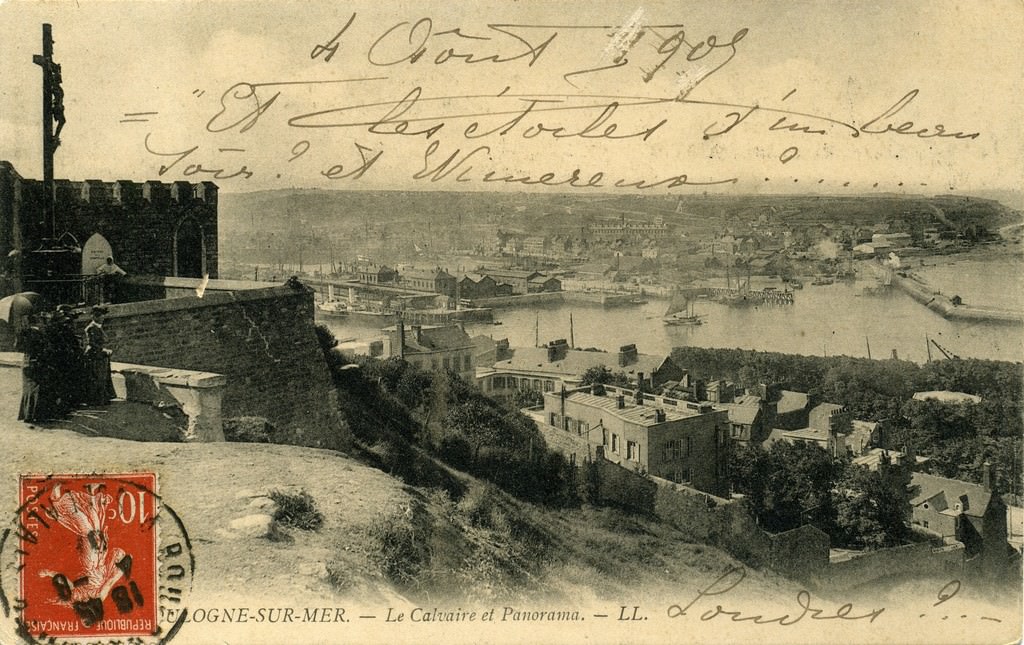 4 Août 1909
= "Et les étoiles d'un beau
soir? et Wimereux?........
10c
POSTES
REPUBLIQUE FRANÇAISE
ULOGNE-SUR-MER. — Le Calvaire et Panorama. — LL.
Londres?...